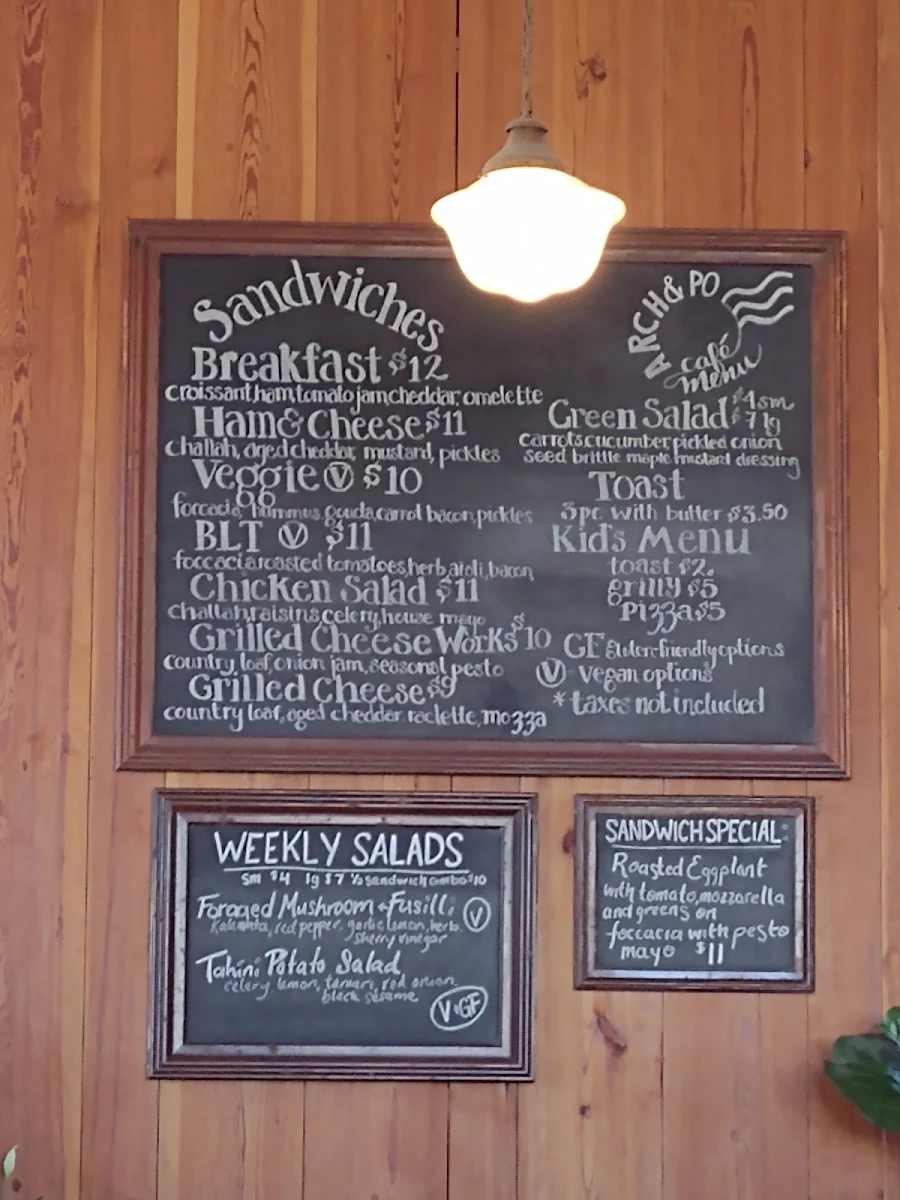 Sandwiches
Breakfast $12
croissant, ham, tomato jam, cheddar, omelette
Ham & Cheese $11
challah, aged cheddar, mustard, pickles
Veggie Ⓥ $10
foccacia, hummus, gouda, carrot bacon, pickles
BLT Ⓥ $11
foccacia, roasted tomatoes, herb aioli, bacon
Chicken Salad $11
challah, raisins, celery, house mayo
Grilled Cheese Works $10
country loaf, onion jam, seasonal pesto
Grilled Cheese $9
country loaf, aged chedder raclette, mozza
ARCH & PO
café
menu
Green Salad $4 sm
$7 lg
carrots, cucumber, pickled onion
seed brittle maple mustard dressing
Toast
3pc with butter $3.50
Kid's Menu
toast $2.
grilly $5
pizza $5
GF gluten-friendly options
Ⓥ - vegan options
* taxes not included
WEEKLY SALADS
sm $4 lg $7 ½ sandwich combo $10
Foraged Mushroom + Fusilli Ⓥ
Kalamata, red pepper, garlic, lemon, herb,
sherry vinegar
Tahini Potato Salad
celery, lemon, tamari, red onion,
black sesame
V+GF
SANDWICH SPECIAL:
Roasted Eggplant
with tomato, mozzarella
and greens on
foccacia with pesto
mayo $11